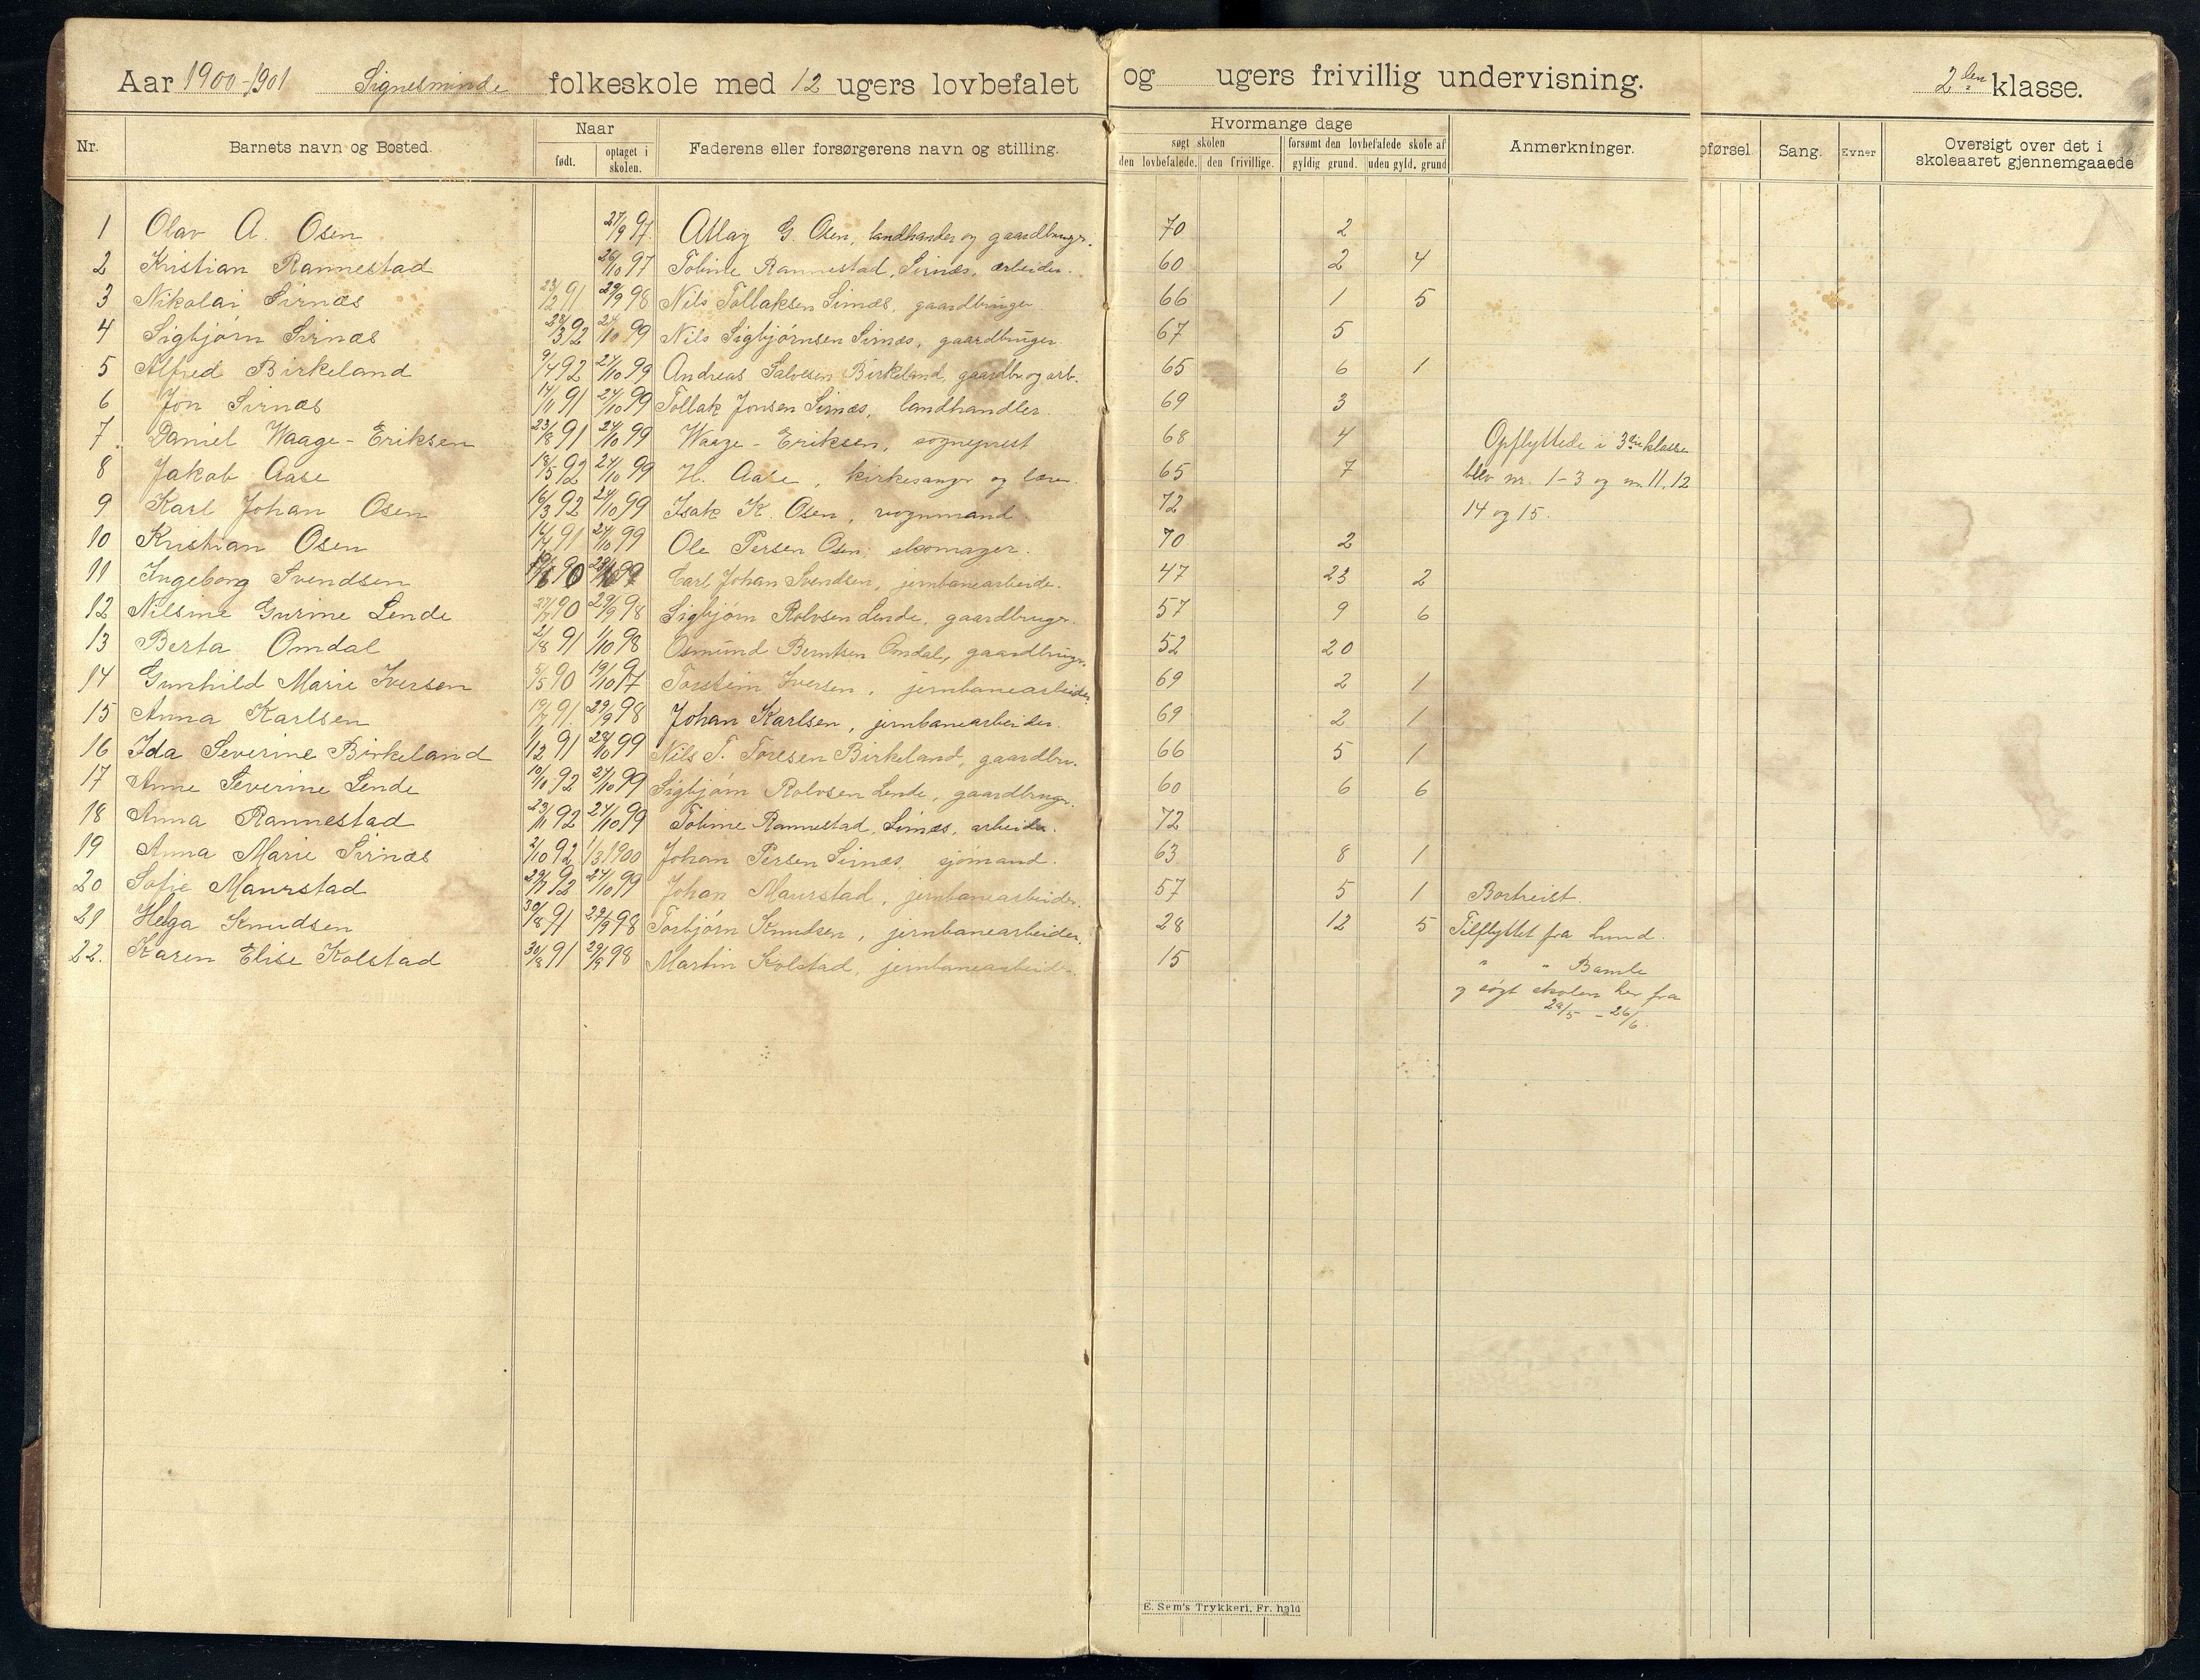 Aar 1900-1901 Signelsminde folkeskole med 12 ugers lovbefalet og ugers frivillig undervisning. 2den klasse.
Nr. Barnets navn og Bosted. Naar født. optaget i skolen. Faderens eller forsørgerens navn og stilling. Hvormange dage søgt skolen den lovbefalede. den frivillige. forsømt den lovbefalede skole af gyldig grund. uden gyld. grund Anmerkninger. pførsel Sang. Evner Oversigt over det i skoleaaret gjennemgaaede
1 Olav A. Osen 27/9 97. G. Osen, landhandler og gaardbruger. 70 2
2 Kristian Rannestad 26/10 97 Tobine Rannestad, Sirnæs, arbeider. 60 2 4
3 Nikolai Sirnæs 23/12 91 29/9 98 Nils Tollaksen Sirnæs, gaardbruger 66 1 5
4 Sigbjørn Sirnæs 28/3 92 24/10 99 Nils Sigbjørnsen Sirnæs, gaardbruger. 67 5
5 Alfred Birkeland 9/4 92 24/10 99 Andreas Salvesen Birkeland, gaardbr. og arb. 65 6 1
6 Jon Sirnæs 14/11 91 24/10 99 Tollak Jonsen Sirnæs, landhandler. 69 3
7 Daniel Waage-Eriksen 23/8 91 24/10 99 Waage-Eriksen, sogneprest 68 4 Opflyttede i 3die klasse
8 Jakob Aase 18/5 92 24/10 99 H. Aase, kirkesanger og lærer. 65 7 blev nr. 1-3 og nr. 11. 12
9 Karl Johan Osen 16/3 92 24/10 99 Isak K. Osen, vognmand 72 14 og 15.
10 Kristian Osen 91 24/10 99 Ole Persen Osen, skomager. 70 2
11 Ingeborg Svendsen 90 Carl Johan Svendsen, jernbanearbeide. 47 23 2
12 Nilsine Gurine Lende 90 29/9 98 Sigbjørn Rolvsen Lende, gaardbruger. 57 9 6
13 Berta Omdal 2/8 91 1/10 98 Osmund Berntsen Omdal, gaardbruger. 52 20
14 Gunhild Marie Iversen 5/5 90 19/10 97 Torstein Iversen, jernbanearbeider 69 2 1
15 Anna Karlsen 91. 29/9 98 Johan Karlsen, jernbanearbeider. 69 2 1
16 Ida Severine Birkeland 1/12 91 24/10 99 Nils T. Toresen Birkeland, gaardbr. 66 5 1
17 Anne Severine Lende 10/10 92 24/10 99 Sigbjørn Rolvsen Lende, gaardbruger. 60 6 6
18 Anna Rannestad 23/11 92 24/10 99 Tobine Rannestad, Sirnæs, arbeider. 72
19 Anna Marie Sirnæs 2/10 92 1/3 1900 Johan Persen Sirnæs, sjømand. 63 8 1
20 Sofie Maurstad 92 24/10 99 Johan Maurstad, jernbanearbeider. 57 5 1 Bortreist.
21 Helga Knudsen 30/8 91 29/9 98 Torbjørn Knudsen, jernbanearbeider. 28 12 5 Tilflyttet fra Lund.
22. Karen Elise Kolstad 30/8 91 29/9 98 Martin Kolstad, jernbanearbeider. 15 " " Bamle
og søgt skolen her fra
29/5 - 26/6.
E. Sem's Trykkeri, Fr. hald